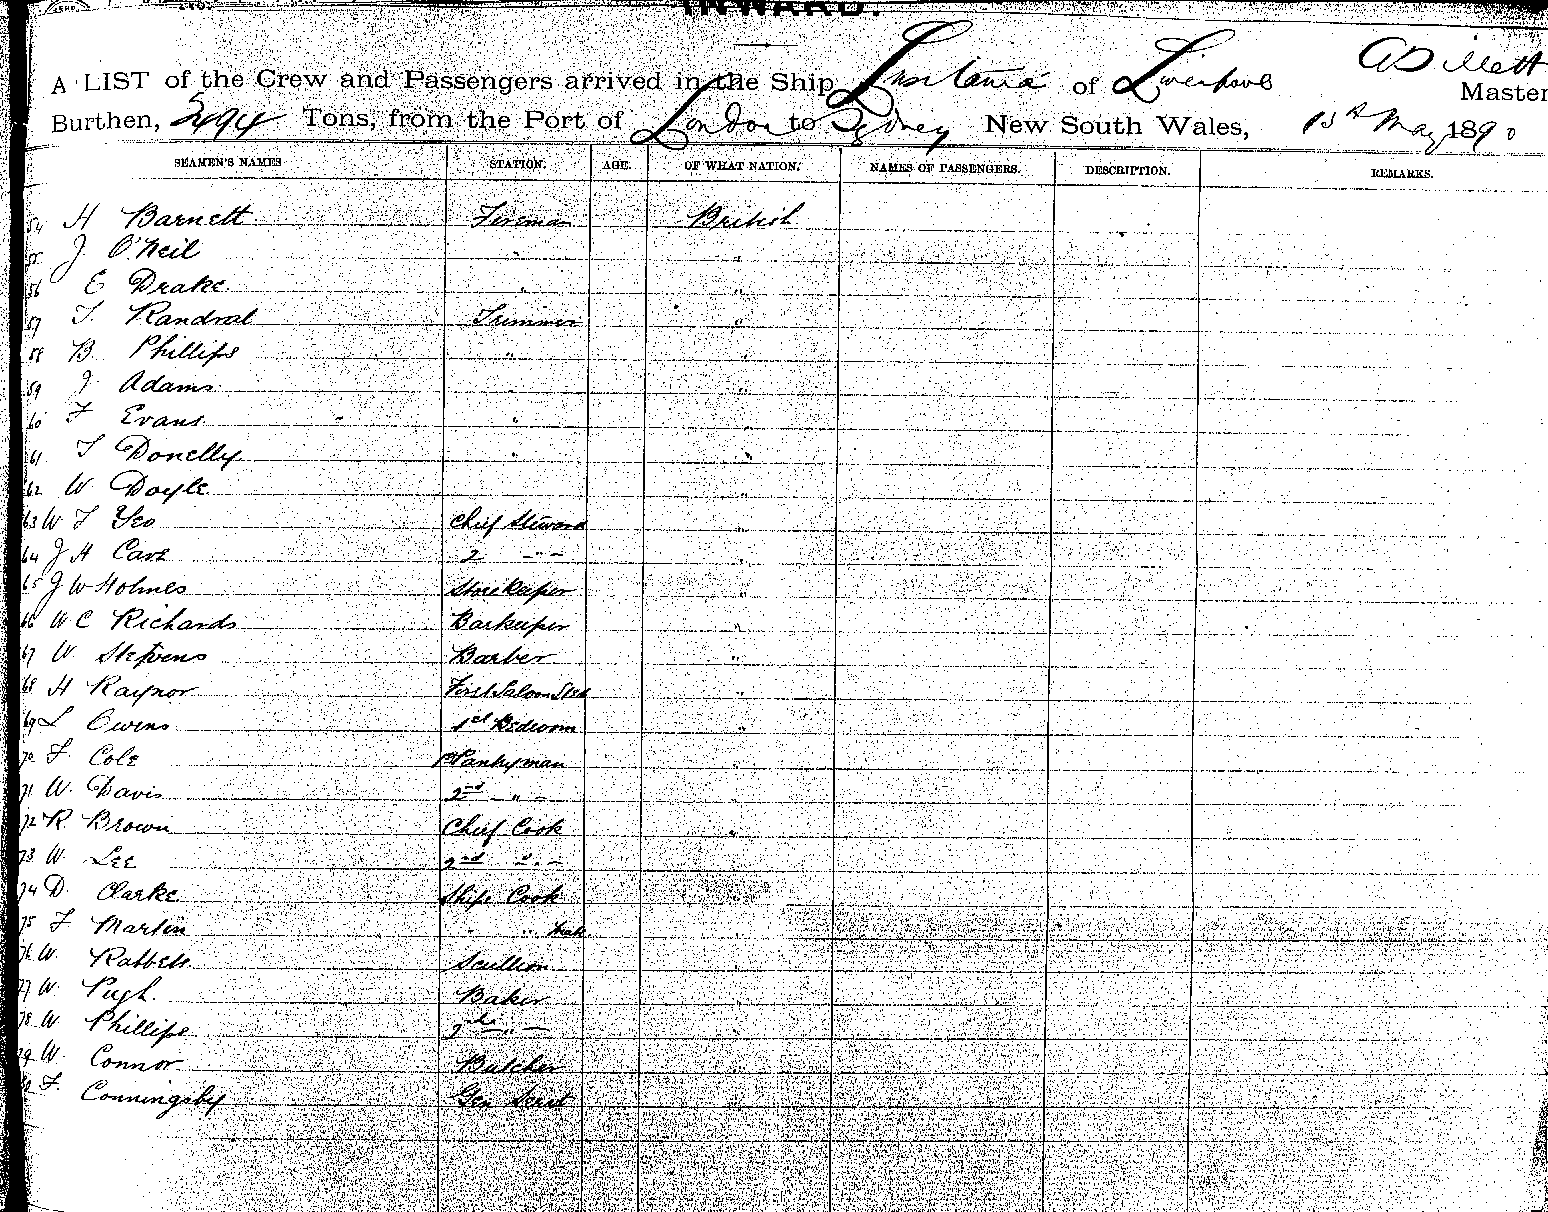 INWARD.
A LIST of the Crew and Passengers arrived in the Ship Lusitania of Liverpool
Master
Burthen, 2494 Tons, from the Port of London to Sydney New South Wales, 13th May 1890
SEAMEN'S NAMES STATION. AGE. OF WHAT NATION. NAMES OF PASSENGERS. DESCRIPTION. REMARKS.
54 H Barnett Fireman British
55 J O'Neil " "
56 E Drake " "
57 T. Randval Trimmer "
58 B. Phillips " "
59 J Adams "
60 F Evans " "
61 T Donelly " "
62 W Doyle "
63 W T Yeo Chief Steward "
64 J H Carr 2 " "
65 J W Holmes Storekeeper "
66 W C Richards Barkeeper "
67 W. Stevens Barber "
68 H Raynor First Saloon Std "
69 L Owens 1st Bedroom "
70 F. Cole 1st Pantryman "
71 W. Davis 2nd "
72 R Brown Chief Cook "
73 W. Lee 2nd "
74 D. Clarke Ships Cook
75 F Martin " " Mate
76 W. Rabbett Scullion
77 W. Pugh. Baker
78 W Phillips 2nd "
79 W. Connor Butcher
80 F. Conningsby Gen Servt